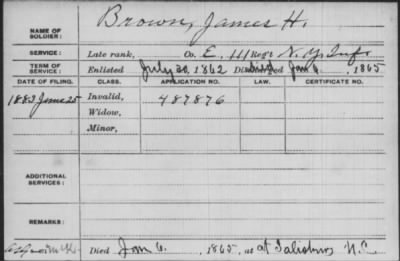 Brown, James H.
NAME OF
SOLDIER:
SERVICE: Late rank, Co. E, 111 Reg't N.Y. Inf.
TERM OF
SERVICE: Enlisted July 20, 1862 Discharged died Jan 6, 1865
DATE OF FILING. CLASS. APPLICATION NO. LAW. CERTIFICATE NO.
1883 June 25 Invalid, 487876
Widow,
Minor,
ADDITIONAL
SERVICES:
REMARKS:
Died Jan 6, 1865, at at Salisbury N.C.